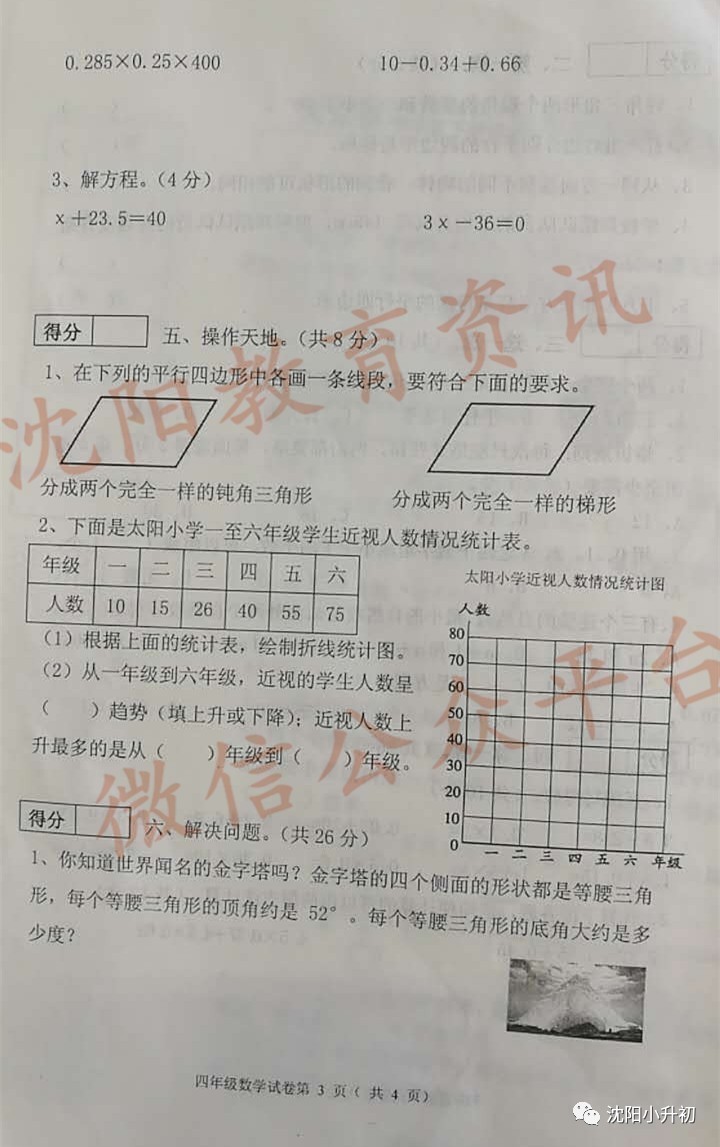 0.285×0.25×400 10－0.34＋0.66
3、解方程。(4 分)
x＋23.5＝40 3x－36＝0
得分 五、操作天地。(共 8 分)
1、在下列的平行四边形中各画一条线段，要符合下面的要求。
分成两个完全一样的钝角三角形 分成两个完全一样的梯形
2、下面是太阳小学一至六年级学生近视人数情况统计表。
年级 一 二 三 四 五 六
人数 10 15 26 40 55 75
太阳小学近视人数情况统计图
人数
80
70
60
50
40
30
20
10
0
一 二 三 四 五 六 年级
(1) 根据上面的统计表，绘制折线统计图。
(2) 从一年级到六年级，近视的学生人数呈
（ ）趋势（填上升或下降）；近视人数上
升最多的是从（ ）年级到（ ）年级。
得分 六、解决问题。(共 26 分)
1、你知道世界闻名的金字塔吗？金字塔的四个侧面的形状都是等腰三角
形，每个等腰三角形的顶角约是 52° 。每个等腰三角形的底角大约是多
少度？
四年级数学试卷第 3 页（ 共 4 页）
沈阳教育资讯
微信公众平台
沈阳小升初